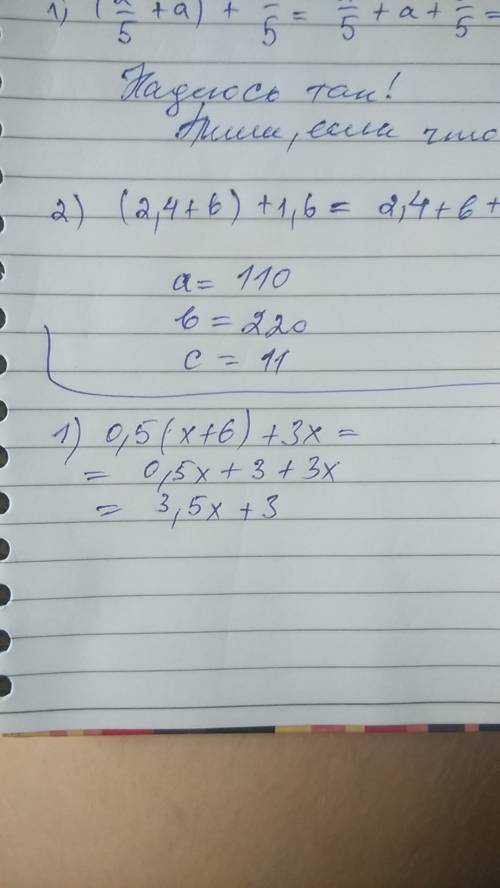 1) ( /5 + a) + /5 = /5 + a + /5 =
Надеюсь так!
Пиши, если что
2) (2,4+b) +1,6 = 2,4+b+
a = 110
b = 220
c = 11
1) 0,5(x+6) +3x =
= 0,5x + 3 + 3x
= 3,5x + 3